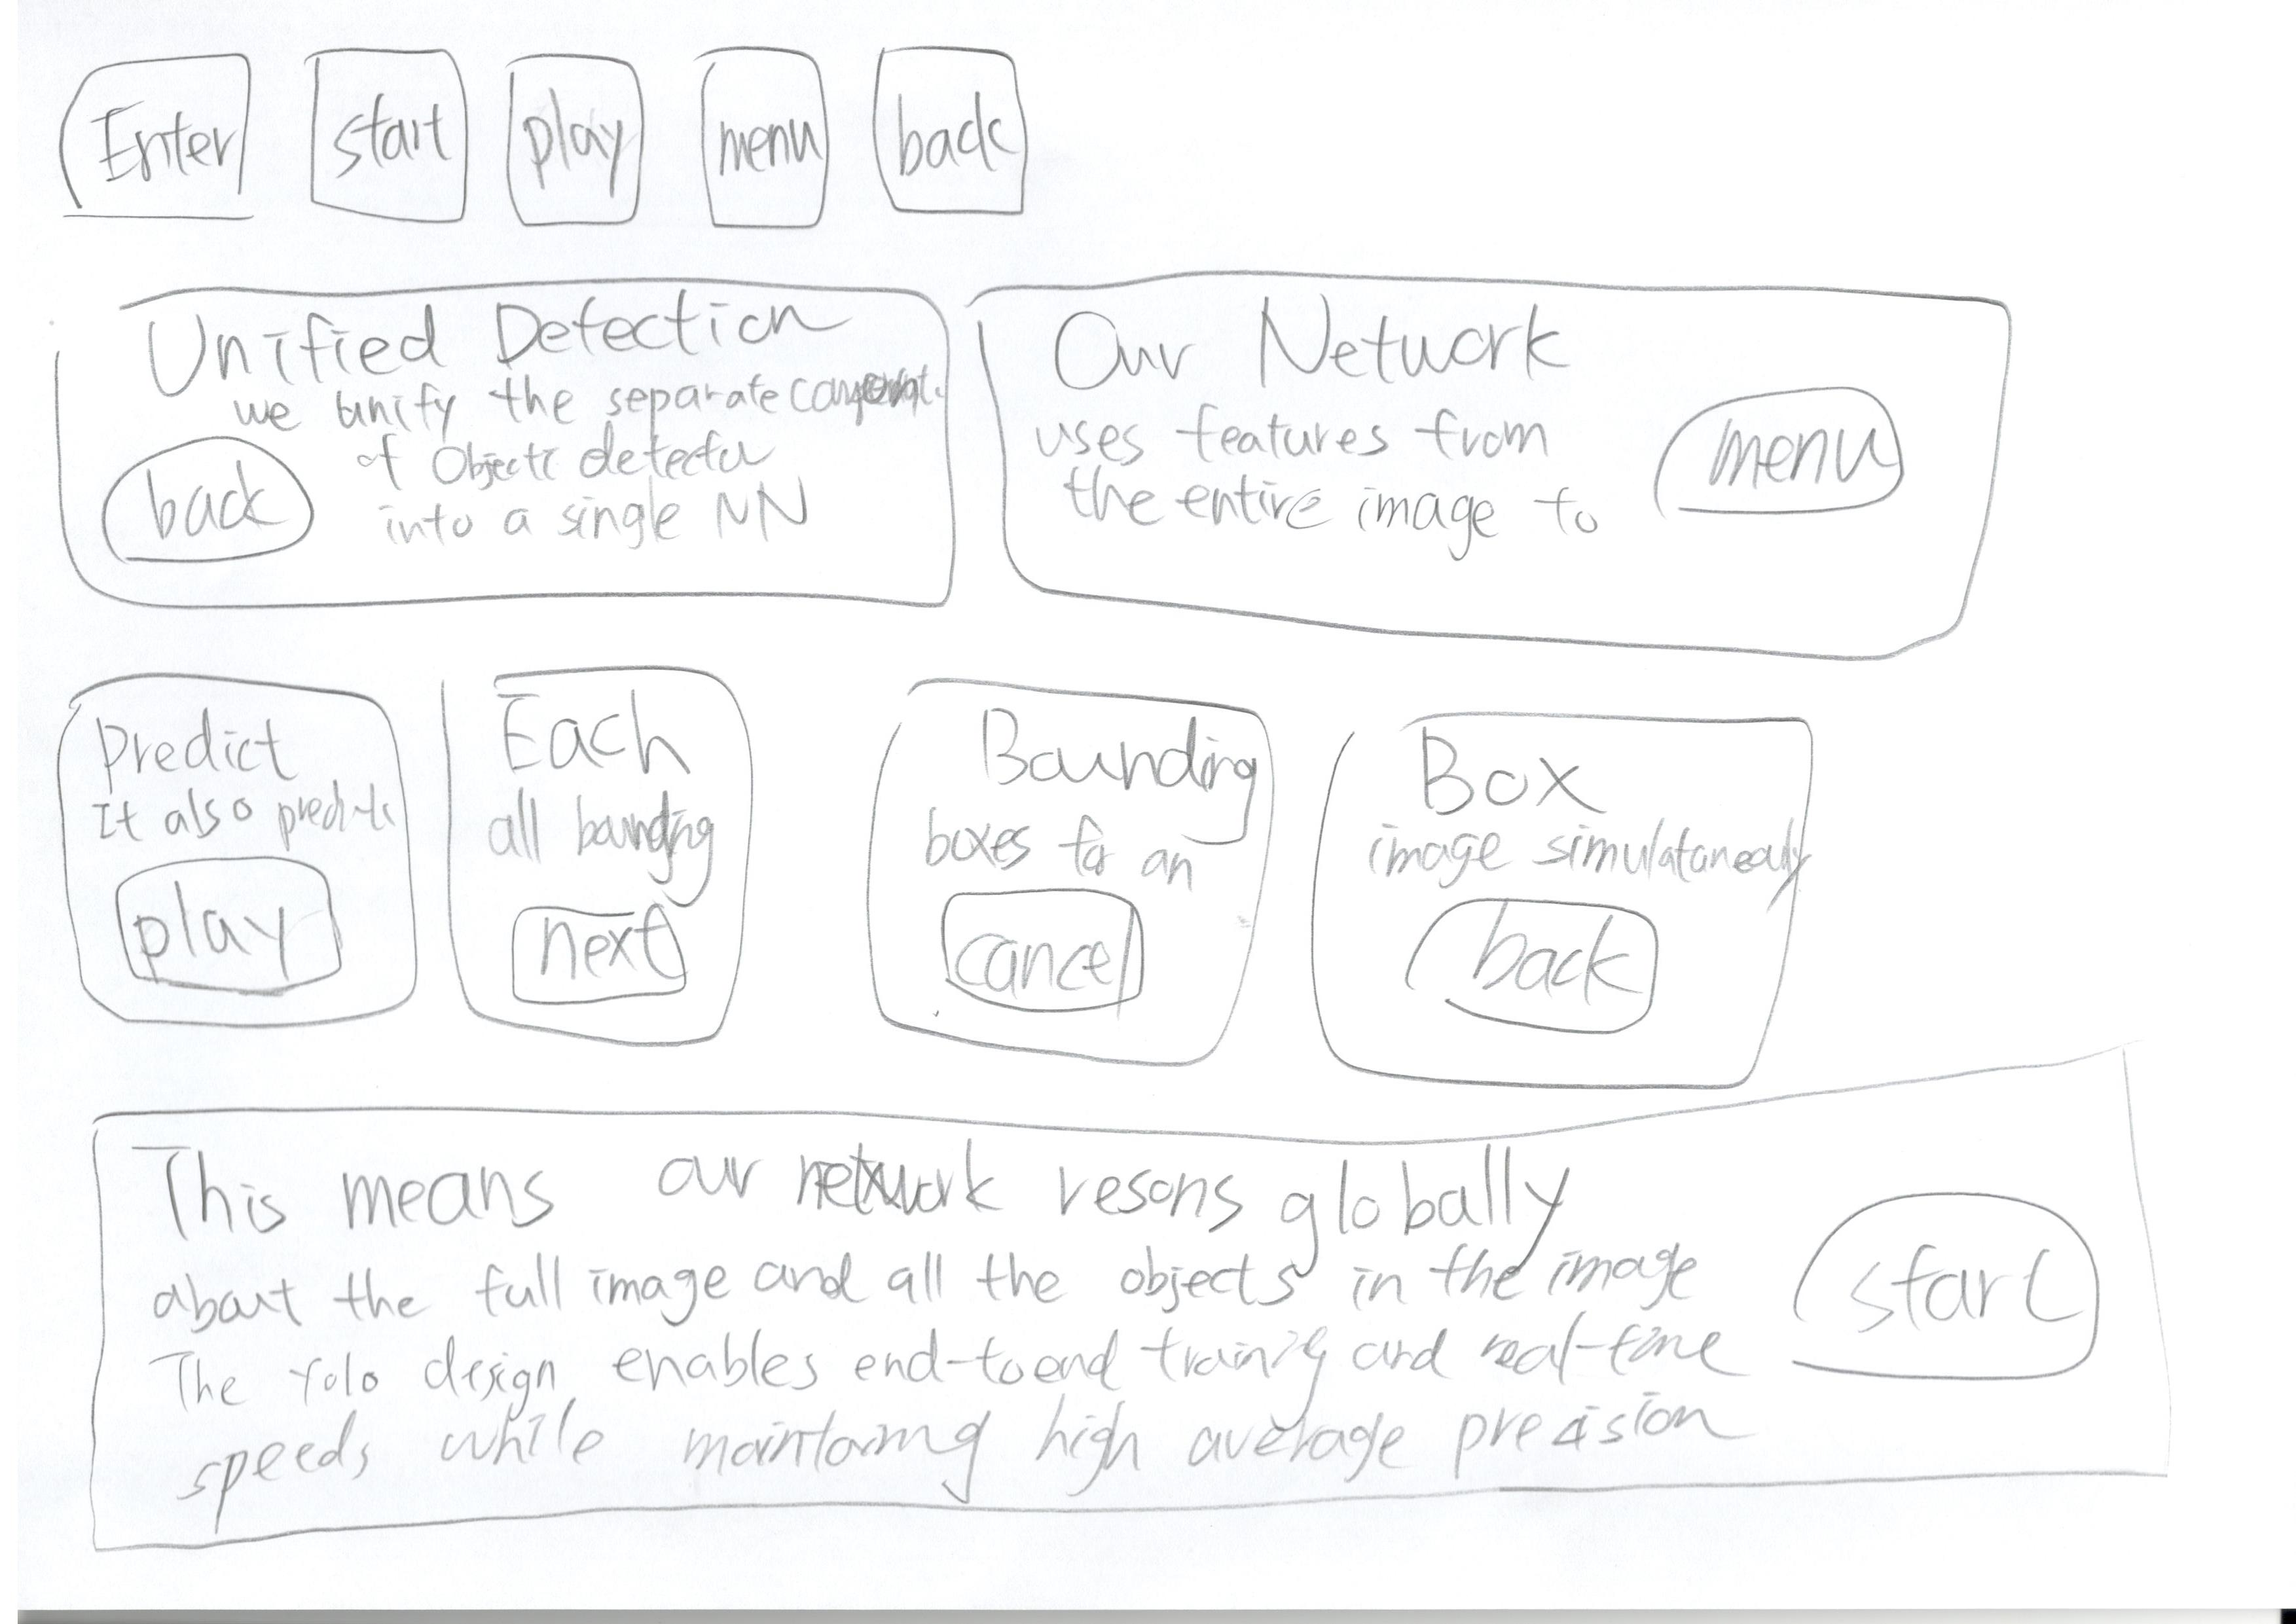 Enter start play menu back
Unified Detection
we unify the separate
of Objects
into a single NN
back
Our Network
uses features from
the entire image to
menu
Predict
It also predicts
play
Each
all bounding
next
Bounding
boxes for an
cancel
Box
image simulataneously
back
This means our network resons globally
about the full image and all the objects in the image
The Yolo design enables end-to end training and real-time
speeds while maintaining high average precision
start